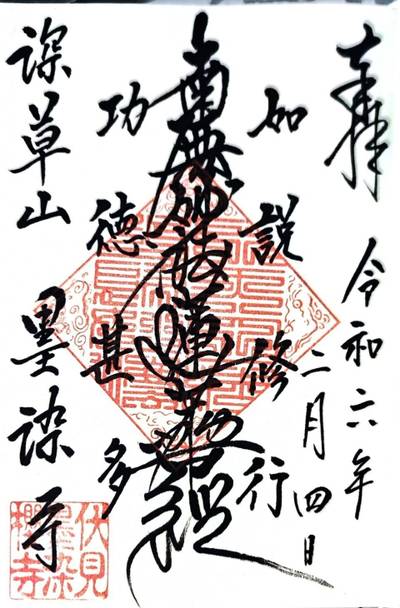 奉拝
令和六年
二月四日
如説修行
南無妙法蓮華経
功徳甚多
深草山 墨染寺
伏見
墨染
櫻寺